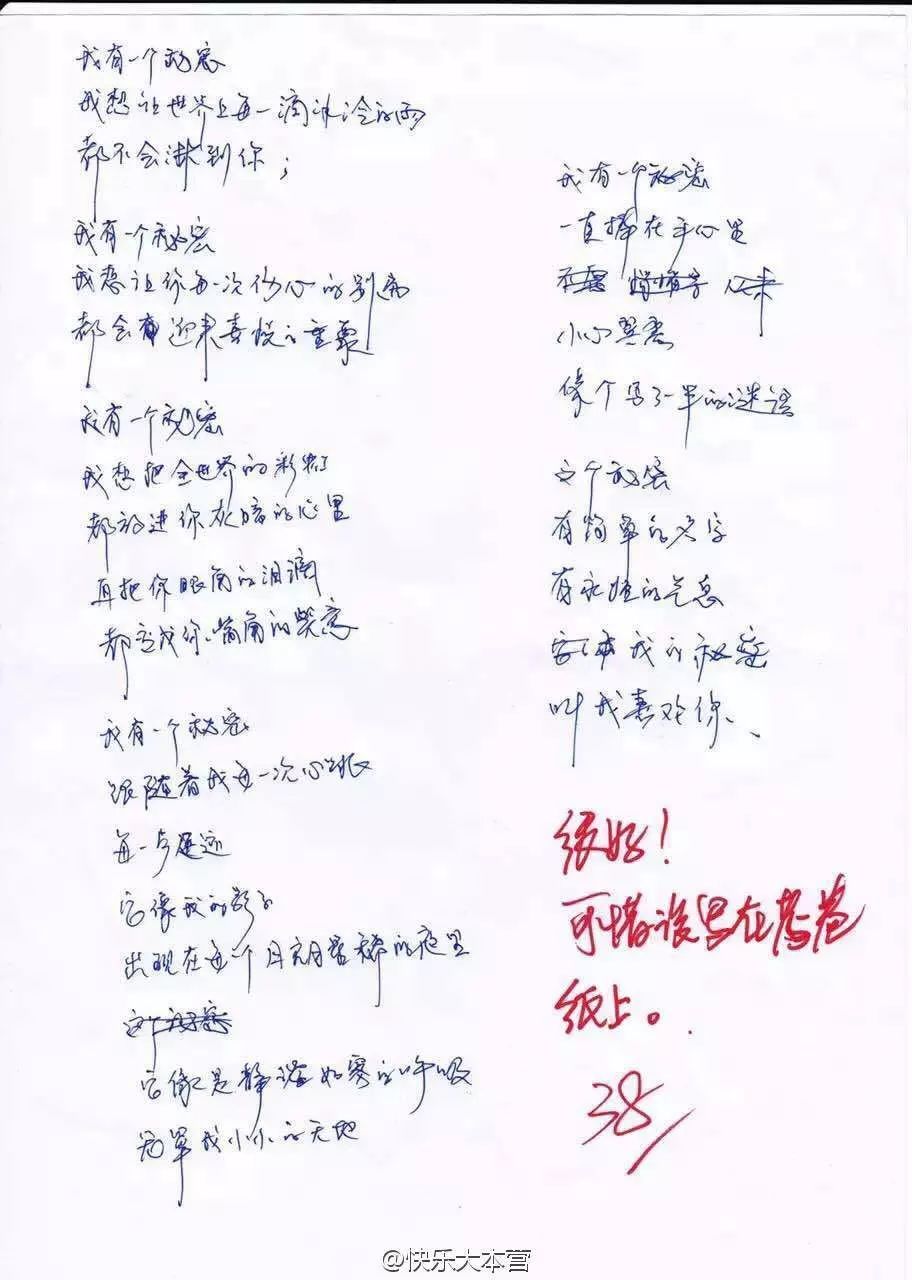 我有一个秘密
我想让世界上每一滴冰冷的雨
都不会淋到你；
我有一个秘密
我想让你每一次伤心的别离
都会有迎来喜悦的重聚
我有一个秘密
我想把全世界的彩虹
都放进你灰暗的心里
再把你眼角的泪滴
都变成你嘴角的笑意
我有一个秘密
跟随着我每一次心跳
每一步足迹
它像我的影子
出现在每一个月亮星稀的夜里
这个秘密
它像是静谧如雾的呼吸
笼罩我小小的天地
我有一个秘密
一直捧在手心里
小心翼翼
像个写了一半的谜语
这个秘密
有简单的名字
有永恒的气息
我的秘密
叫我喜欢你、
很好！
可惜误写在答卷
纸上。
38
@快乐大本营